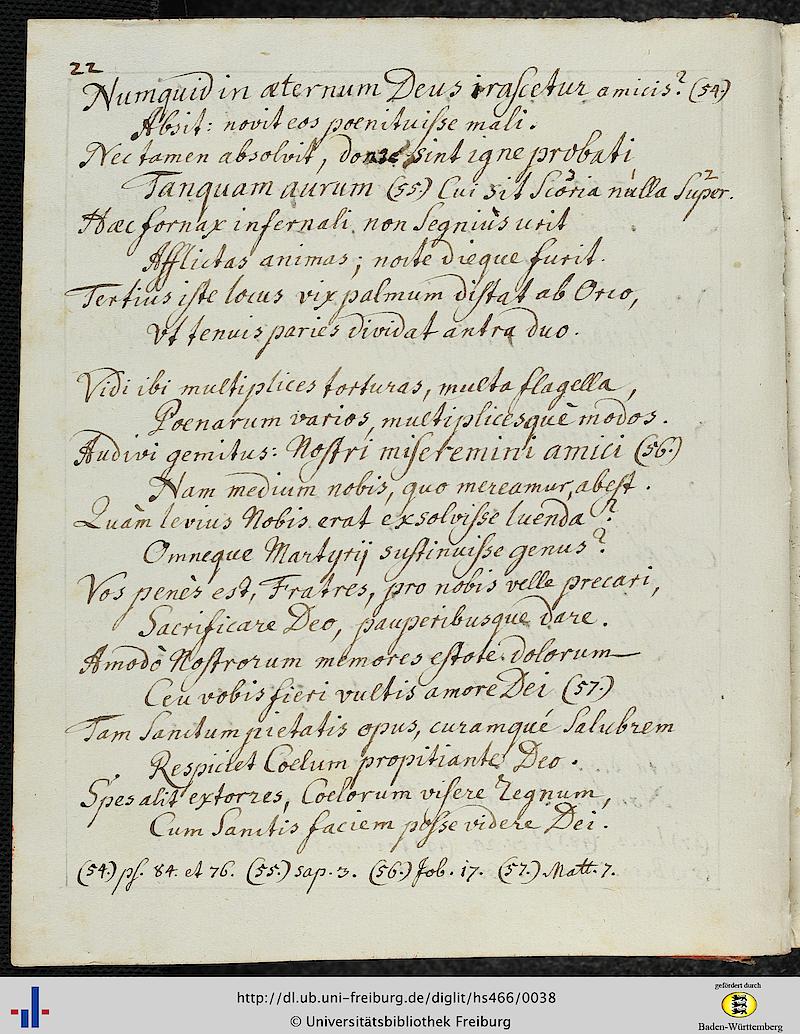 22
Numquid in æternum Deus irascetur amicis? (54.)
Absit: novit eos poenituisse mali.
Nec tamen absolvit, donec sint igne probati
Tanquam aurum (55.) Cui sit Scoria nulla Super.
Hæc fornax infernali non Segniùs urit
Afflictas animas; nocte dieque furit.
Tertius iste locus vix palmum distat ab Orco,
Vt tenuis paries dividat antra duo.
Vidi ibi multiplices torturas, multa flagella,
Poenarum varios, multiplicesquè modos.
Audivi gemitus: Nostri miseremini amici (56.)
Nam medium nobis, quo mereamur, abest.
Quàm levius Nobis erat exsolvisse luenda?
Omneque Martyrij sustinuisse genus?
Vos penès est, Fratres, pro nobis velle precari,
Sacrificare Deo, pauperibusque dare.
Amodò Nostrorum memores estote dolorum
Ceu vobis fieri vultis amore Dei (57.)
Tam Sanctum pietatis opus, curamqué Salubrem
Respiciet Coelum propitiante Deo.
Spes alit extorres, Coelorum visere regnum,
Cum Sanctis faciem posse videre Dei.
(54.) ps. 84. et 76. (55.) Sap. 3. (56.) Job. 17. (57.) Matt. 7.
http://dl.ub.uni-freiburg.de/diglit/hs466/0038
© Universitätsbibliothek Freiburg
gefördert durch
Baden-Württemberg